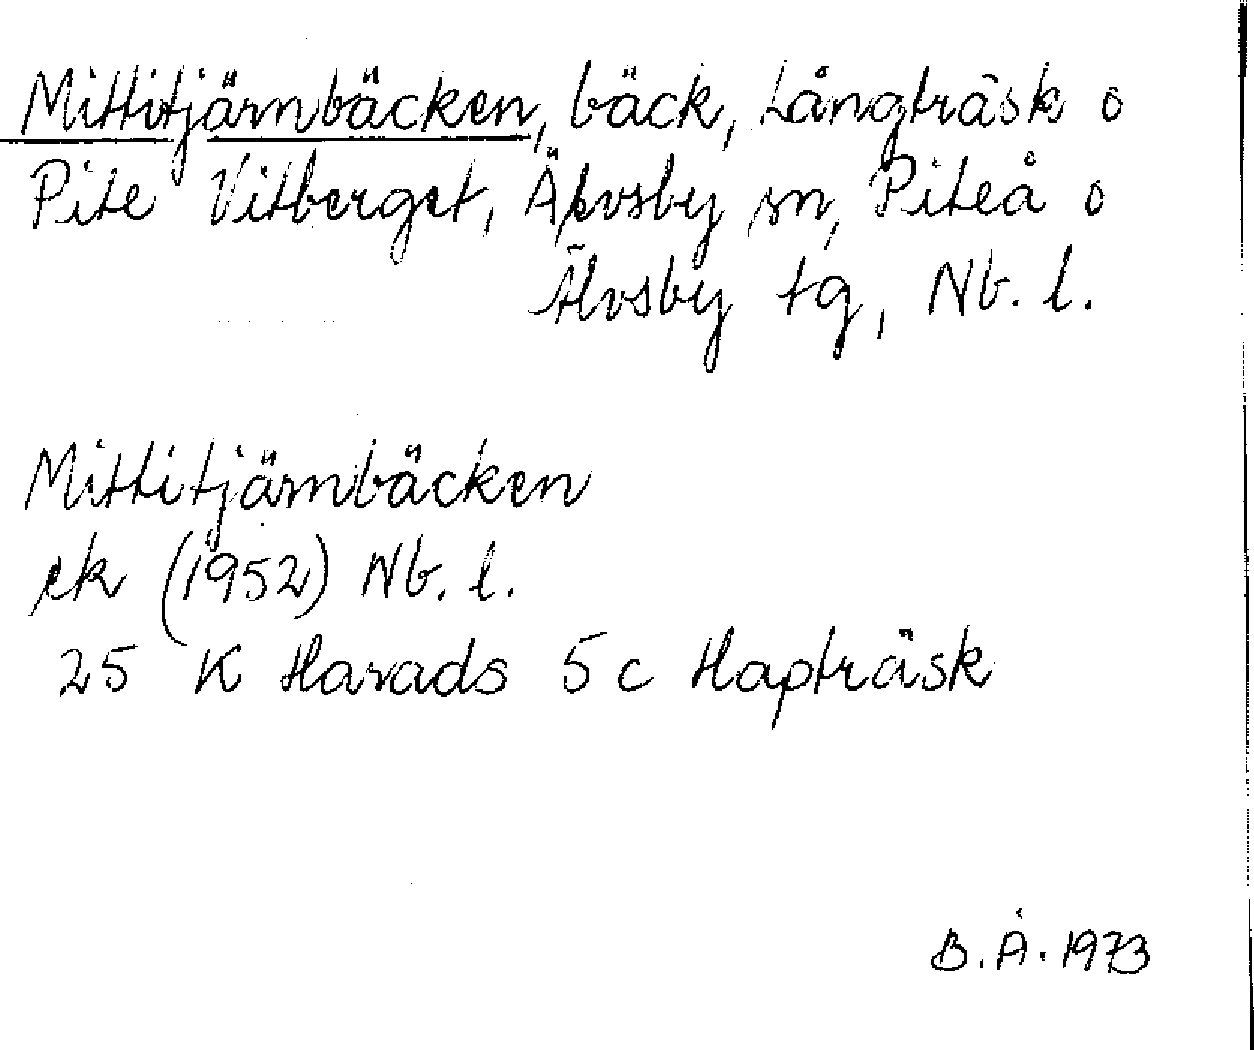 Mittitjärnbäcken, bäck, Långträsk o
Pite Vitberget, Älvsby sn, Piteå o
Älvsby tg, Nb. l.
Mittitjärnbäcken
ek (1952) Nb. l.
25 K Harads 5 c Hapträsk
B. Å. 1973